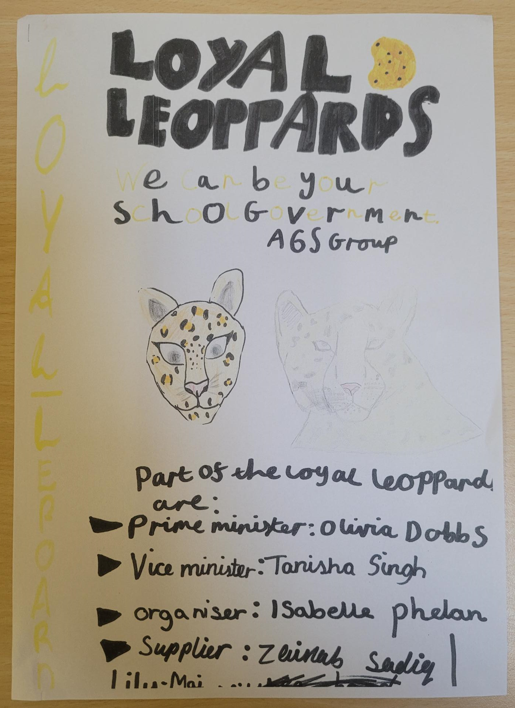 LOYAL
LEOPPARDS
We can be your
School Government
AGS Group
Part of the Loyal Leoppard
are:
Prime minister: Olivia Dobbs
Vice minister: Tanisha Singh
organiser: Isabelle phelan
Supplier: Zainab Sadiq
Lily-Mai
LOYAL LEPOARD